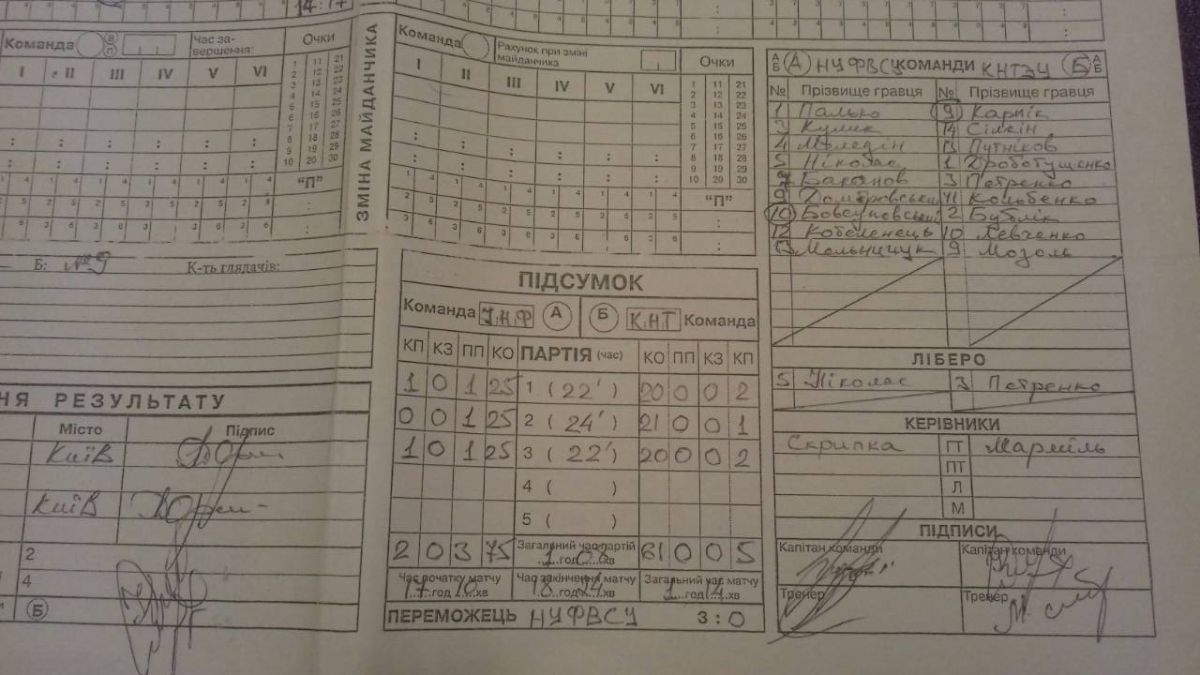 14:17
Команда А Б Час за-вершення: Очки
I II III IV V VI
1 11 21
2 12 22
3 13 23
4 14 24
5 15 25
6 16 26
7 17 27
8 18 28
9 19 29
10 20 30
"П"
ЗМІНА МАЙДАНЧИКА
Команда Рахунок при зміні майданчика Очки
I II III IV V VI
1 11 21
2 12 22
3 13 23
4 14 24
5 15 25
6 16 26
7 17 27
8 18 28
9 19 29
10 20 30
"П"
Б: №9 К-ть глядачів:
НЯ РЕЗУЛЬТАТУ
Місто Підпис
Київ
Київ
2
4
Б
ПІДСУМОК
Команда А Б КНТ Команда
КП КЗ ПП КО ПАРТІЯ (час) КО ПП КЗ КП
1 0 1 25 1 (22') 20 0 0 2
0 0 1 25 2 (24') 21 0 0 1
1 0 1 25 3 (22') 20 0 0 2
4 ( )
5 ( )
2 0 3 75 Загальний час партій 1 год 08 хв 61 0 0 5
Час початку матчу Час закінчення матчу Загальний час матчу
17 год 10 хв 18 год 24 хв 1 год 14 хв
ПЕРЕМОЖЕЦЬ НУФВСУ 3:0
А Б А НУФВСУ КОМАНДИ КНТЭУ Б А Б
№ Прізвище гравця № Прізвище гравця
1 Палько 9 Карпік
3 Кулик 14 Сілкін
4 Меледін 13 Путніков
5 Ніколас 1 Дроботущенко
7 Баканов 3 Петренко
9 Домбровський 11 Коцюбенко
10 Бовсуновський 2 Бублік
12 Кобеленець 10 Левченко
13 Мельничук 9 Мозоль
ЛІБЕРО
5 Ніколас 3 Петренко
КЕРІВНИКИ
Скрипка ГТ
ПТ
Л
М
ПІДПИСИ
Капітан команди Капітан команди
Тренер Тренер